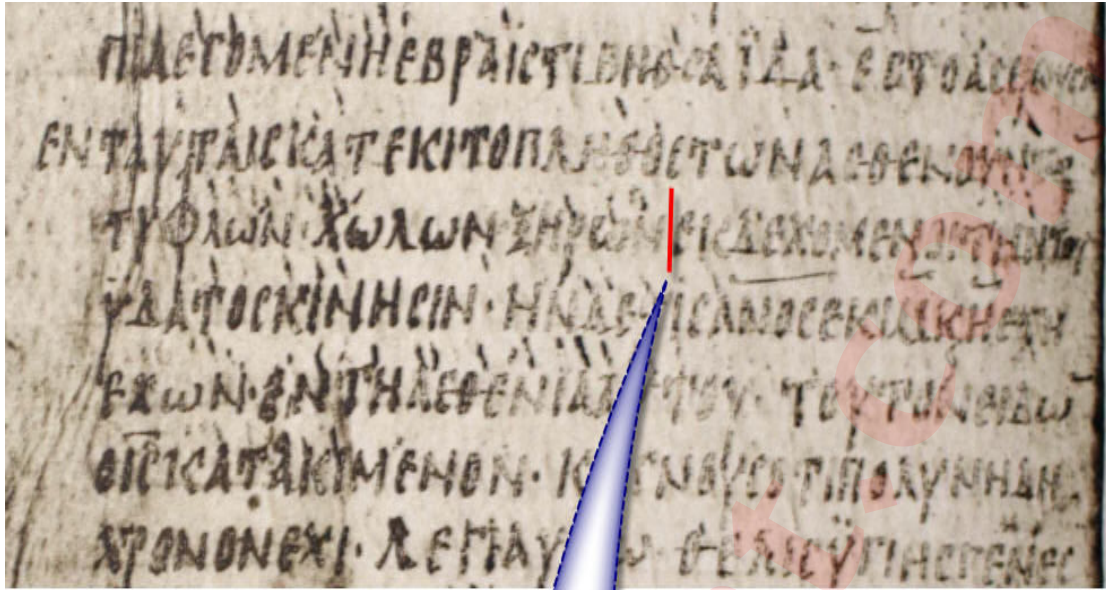 ΠΙΛΕΓΟΜΕΝΗΕΒΡΑΙCΤΙΒΗΘCΑΪΔΑ· ΕCΤΟΑC
ΕΝΤΑΥΤΑΙCΚΑΤΕΚΙΤΟΠΛΗΘΟCΤΩΝΑCΘΕΝΟΥΝΤΩ
ΤΥΦΛΩΝ·ΧΩΛΩΝ·ΞΗΡΩΝ ΕΙCΔΕΧΟΜΕΝΟΙΤΗΝΤΟΥ
ΥΔΑΤΟCΚΙΝΗCΙΝ· ΗΝΔΕ ΤΙCΑΝΟC
ΕΧΩΝ·ΕΝΤΗΑCΘΕΝΙΑ ΤΟΥ· ΤΟΥΤΟΝΕΙΔΩ
ΟΙC ΚΑΤΑΚΙΜΕΝΟΝ· Κ ΓΝΟΥCΟΤΙΠΟΛΥΝΗΔΗ
ΧΡΟΝΟΝΕΧΙ· ΛΕΓΙΑΥ Ω· ΘΕΛΙCΥΓΙΗCΓΕΝΕC